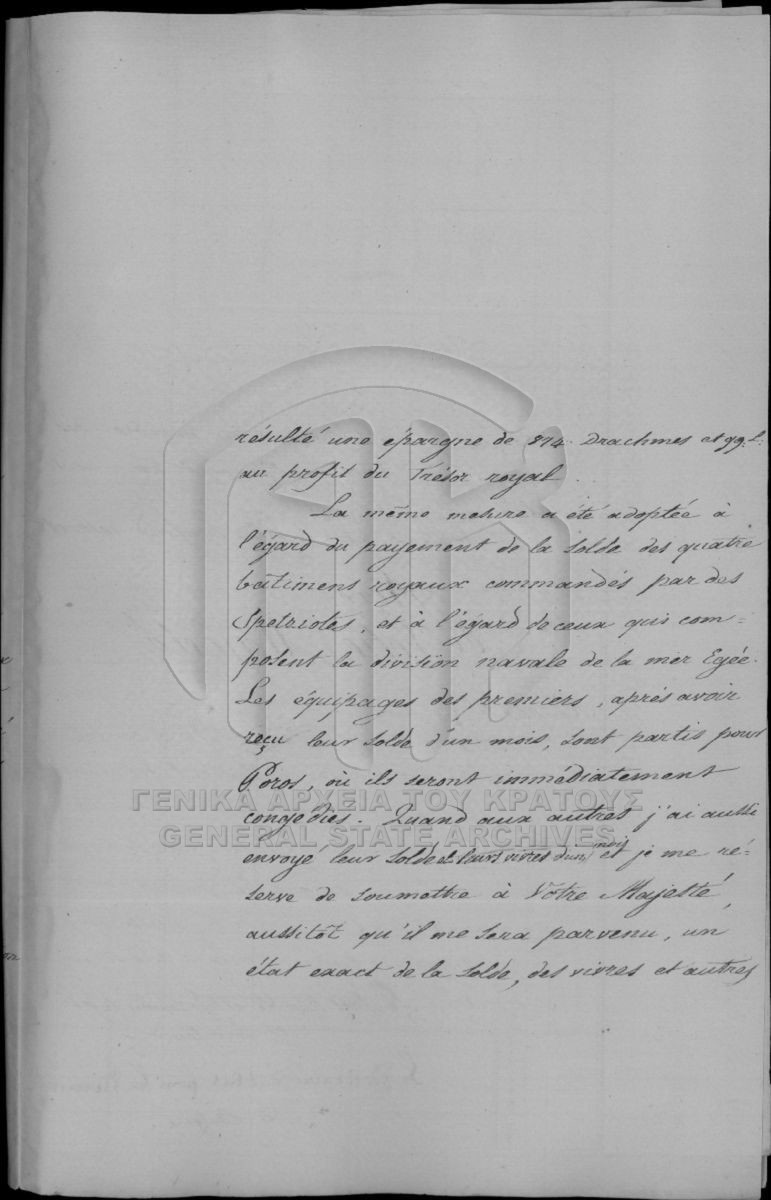 résulté une épargne de 874. Drachmes et 99. L:
au profit du Trésor royal.
La même mesure a été adoptée à
l'égard du payement de la solde des quatre
bâtimens royaux commandés par des
Spetziotes, et à l'égard de ceux qui com=
posent la division navale de la mer Egée.
Les équipages des premiers, après avoir
reçu leur solde d'un mois, sont partis pour
Poros, où ils seront immédiatement
congediés. Quand aux autres j'ai aussi
envoyé leur solde et leurs vivres d'un mois et je me ré=
serve de soumettre à Vôtre Majesté,
aussitôt qu'il me sera parvenu, un
état exact de la solde, des vivres et autres
ΓΕΝΙΚΑ ΑΡΧΕΙΑ ΤΟΥ ΚΡΑΤΟΥΣ
GENERAL STATE ARCHIVES